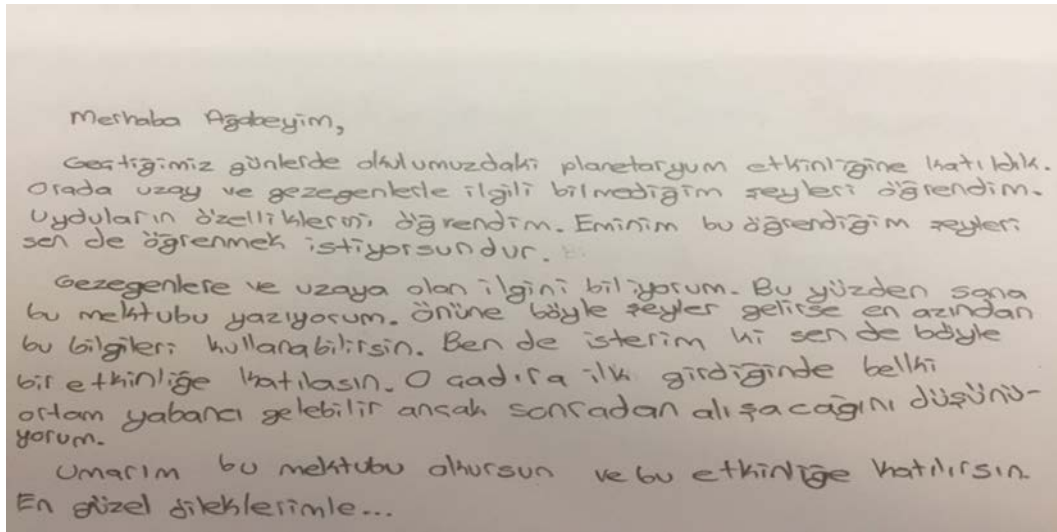 Merhaba Ağabeyim,
Geçtiğimiz günlerde okulumuzdaki planetaryum etkinliğine katıldık.
Orada uzay ve gezegenlerle ilgili bilmediğim şeyleri öğrendim.
Uyduların özelliklerini öğrendim. Eminim bu öğrendiğim şeyleri
sen de öğrenmek istiyorsundur.
Gezegenlere ve uzaya olan ilgini biliyorum. Bu yüzden sana
bu mektubu yazıyorum. Önüne böyle şeyler gelirse en azından
bu bilgileri kullanabilirsin. Ben de isterim ki sen de böyle
bir etkinliğe katılasın. O çadıra ilk girdiğinde belki
ortam yabancı gelebilir ancak sonradan alışacağını düşünü-
yorum.
Umarım bu mektubu okursun ve bu etkinliğe katılırsın.
En güzel dileklerimle...